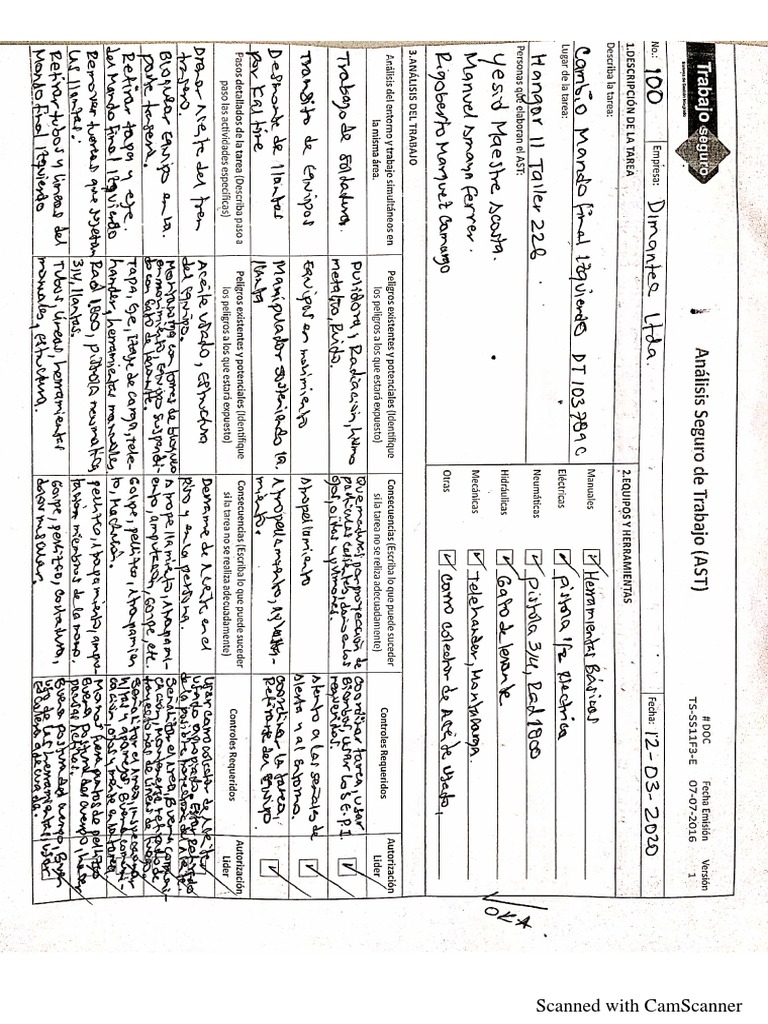 Trabajo seguro
Análisis Seguro de Trabajo (AST)
# DOC Fecha Emisión Versión
TS-SS11F3-E 07-07-2016 1
No.: 100 Empresa: Dimantec Ltda. Fecha: 12-03-2020
1.DESCRIPCIÓN DE LA TAREA
Describa la tarea:
Cambio Mando Final Izquierdo DT103 789C
Lugar de la tarea:
Hangar 11 Taller 226
Personas que elaboran el AST:
Yesid Maestre Acosta.
Manuel Amaya Ferrer.
Rigoberto Marquez Camargo
2.EQUIPOS Y HERRAMIENTAS
Manuales ✓ Herramientas Básicas
Eléctricas ✓ Pistola 1/2 Electrica
Neumáticas ✓ Pistola 3/4, Rad 1800
Hidráulicas ✓ Gato de levante
Mecánicas ✓ Telehander, Montallanta.
Otras ✓ Carro colector de Aceite Usado,
OKA.
3.ANÁLISIS DEL TRABAJO
Análisis del entorno y trabajo simultáneos en
la misma área.
Peligros existentes y potenciales (Identifique
los peligros a los que estará expuesto)
Consecuencias (Escriba lo que puede suceder
si la tarea no se reliza adecuadamente)
Controles Requeridos
Autorización
Lider
Trabajo de Soldadura.
Pulidora, Radiación, humo
metalico, Ruido.
Quemaduras por proyección de
particulas calientes, daños en los
ojos, oitos y pulmones.
Coordinar tarea, usar
Biombos, usar los E.P.I
requeridos.
✓
Transito de Equipos
Equipos en movimiento
Atropellamiento
Atento a las señales de
alerta y al entorno.
✓
Desmonte de llantas
por Kaltire
Manipulador sosteniendo la
llanta
Atropellamiento,
Coordinar la tarea,
Retirarse del Equipo.
✓
Pasos detallados de la tarea (Describa paso a
paso las actividades específicas)
Peligros existentes y potenciales (Identifique
los peligros a los que estará expuesto)
Consecuencias (Escriba lo que puede suceder
si la tarea no se realiza adecuadamente)
Controles Requeridos
Autorización
Lider
Drenar Aceite del tren
trasero.
Aceite usado, Estructura
del Equipo.
Derrame de Aceite en el
Piso y en la persona.
Usar carro colector de Aceite
Bloquear Equipo en la
parte trasera.
Montacarga con torres de bloqueo
en movimiento, equipo suspendi-
do con Gato de levante.
Atropellamiento, Atrapami-
ento, amputación, Golpe, etc
Señalizar el Area, Buena comuni-
cación,
Retirar tapa y eje.
del Mando Final Izquierdo
Tapa, Eje, Izaje de carga, tele-
hander, herramientas manuales.
Golpe, pellizco, Atrapamien
to, Machucon.
Señalizar el Area, inspeccionar
Remover tuercas que sujetan
las llantas.
Rad 1800, pistola neumatica
3/4, llantas.
pellizco, Atrapamiento, ampu-
tación miembros de la mano.
Manos fuera puntos de pellizco
Buena postura del cuerpo, hacer
pausas Activas.
Retirar tubos y lineas del
Mando Final Izquierdo
Tubos, lineas, herramientas
manuales, estructura.
Golpe, pellizco, cortadura,
dolor muscular.
Buena postura del cuerpo, Buen
uso de las herramientas, usar
escalera adecuada.
✓
Scanned with CamScanner